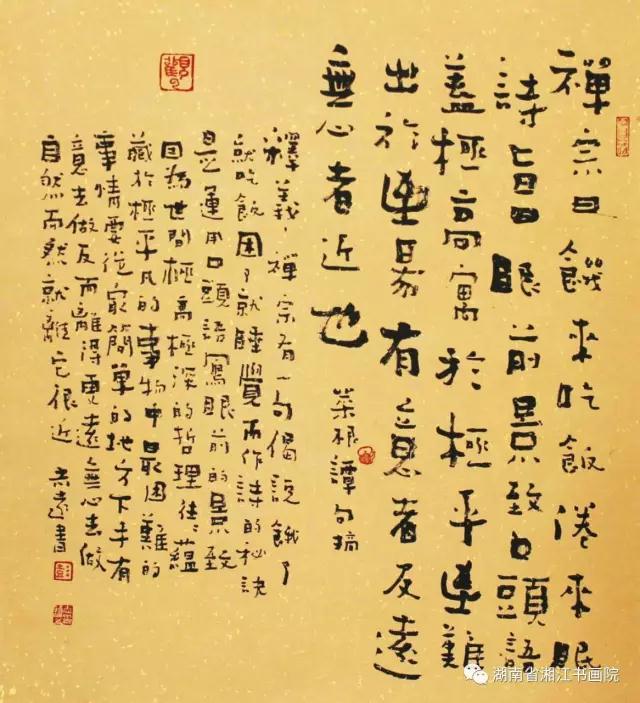 禪宗曰饑來吃飯倦來眠
詩旨曰眼前景致口頭語
蓋極高寓於極平至難
出於至易有意者反遠
無心者近也
菜根譚句摘
釋義，禪宗有一句偈說餓了
就吃飯困了就睡覺而作詩的秘訣
是運用口頭語寫眼前的景致
因為世間極高極深的哲理往々蘊
藏於極平凡的事物中最困難的
事情要從最簡單的地方下手有
意去做反而離得更遠無心去做
自然而然就離它很近 遠書
湖南省湘江书画院